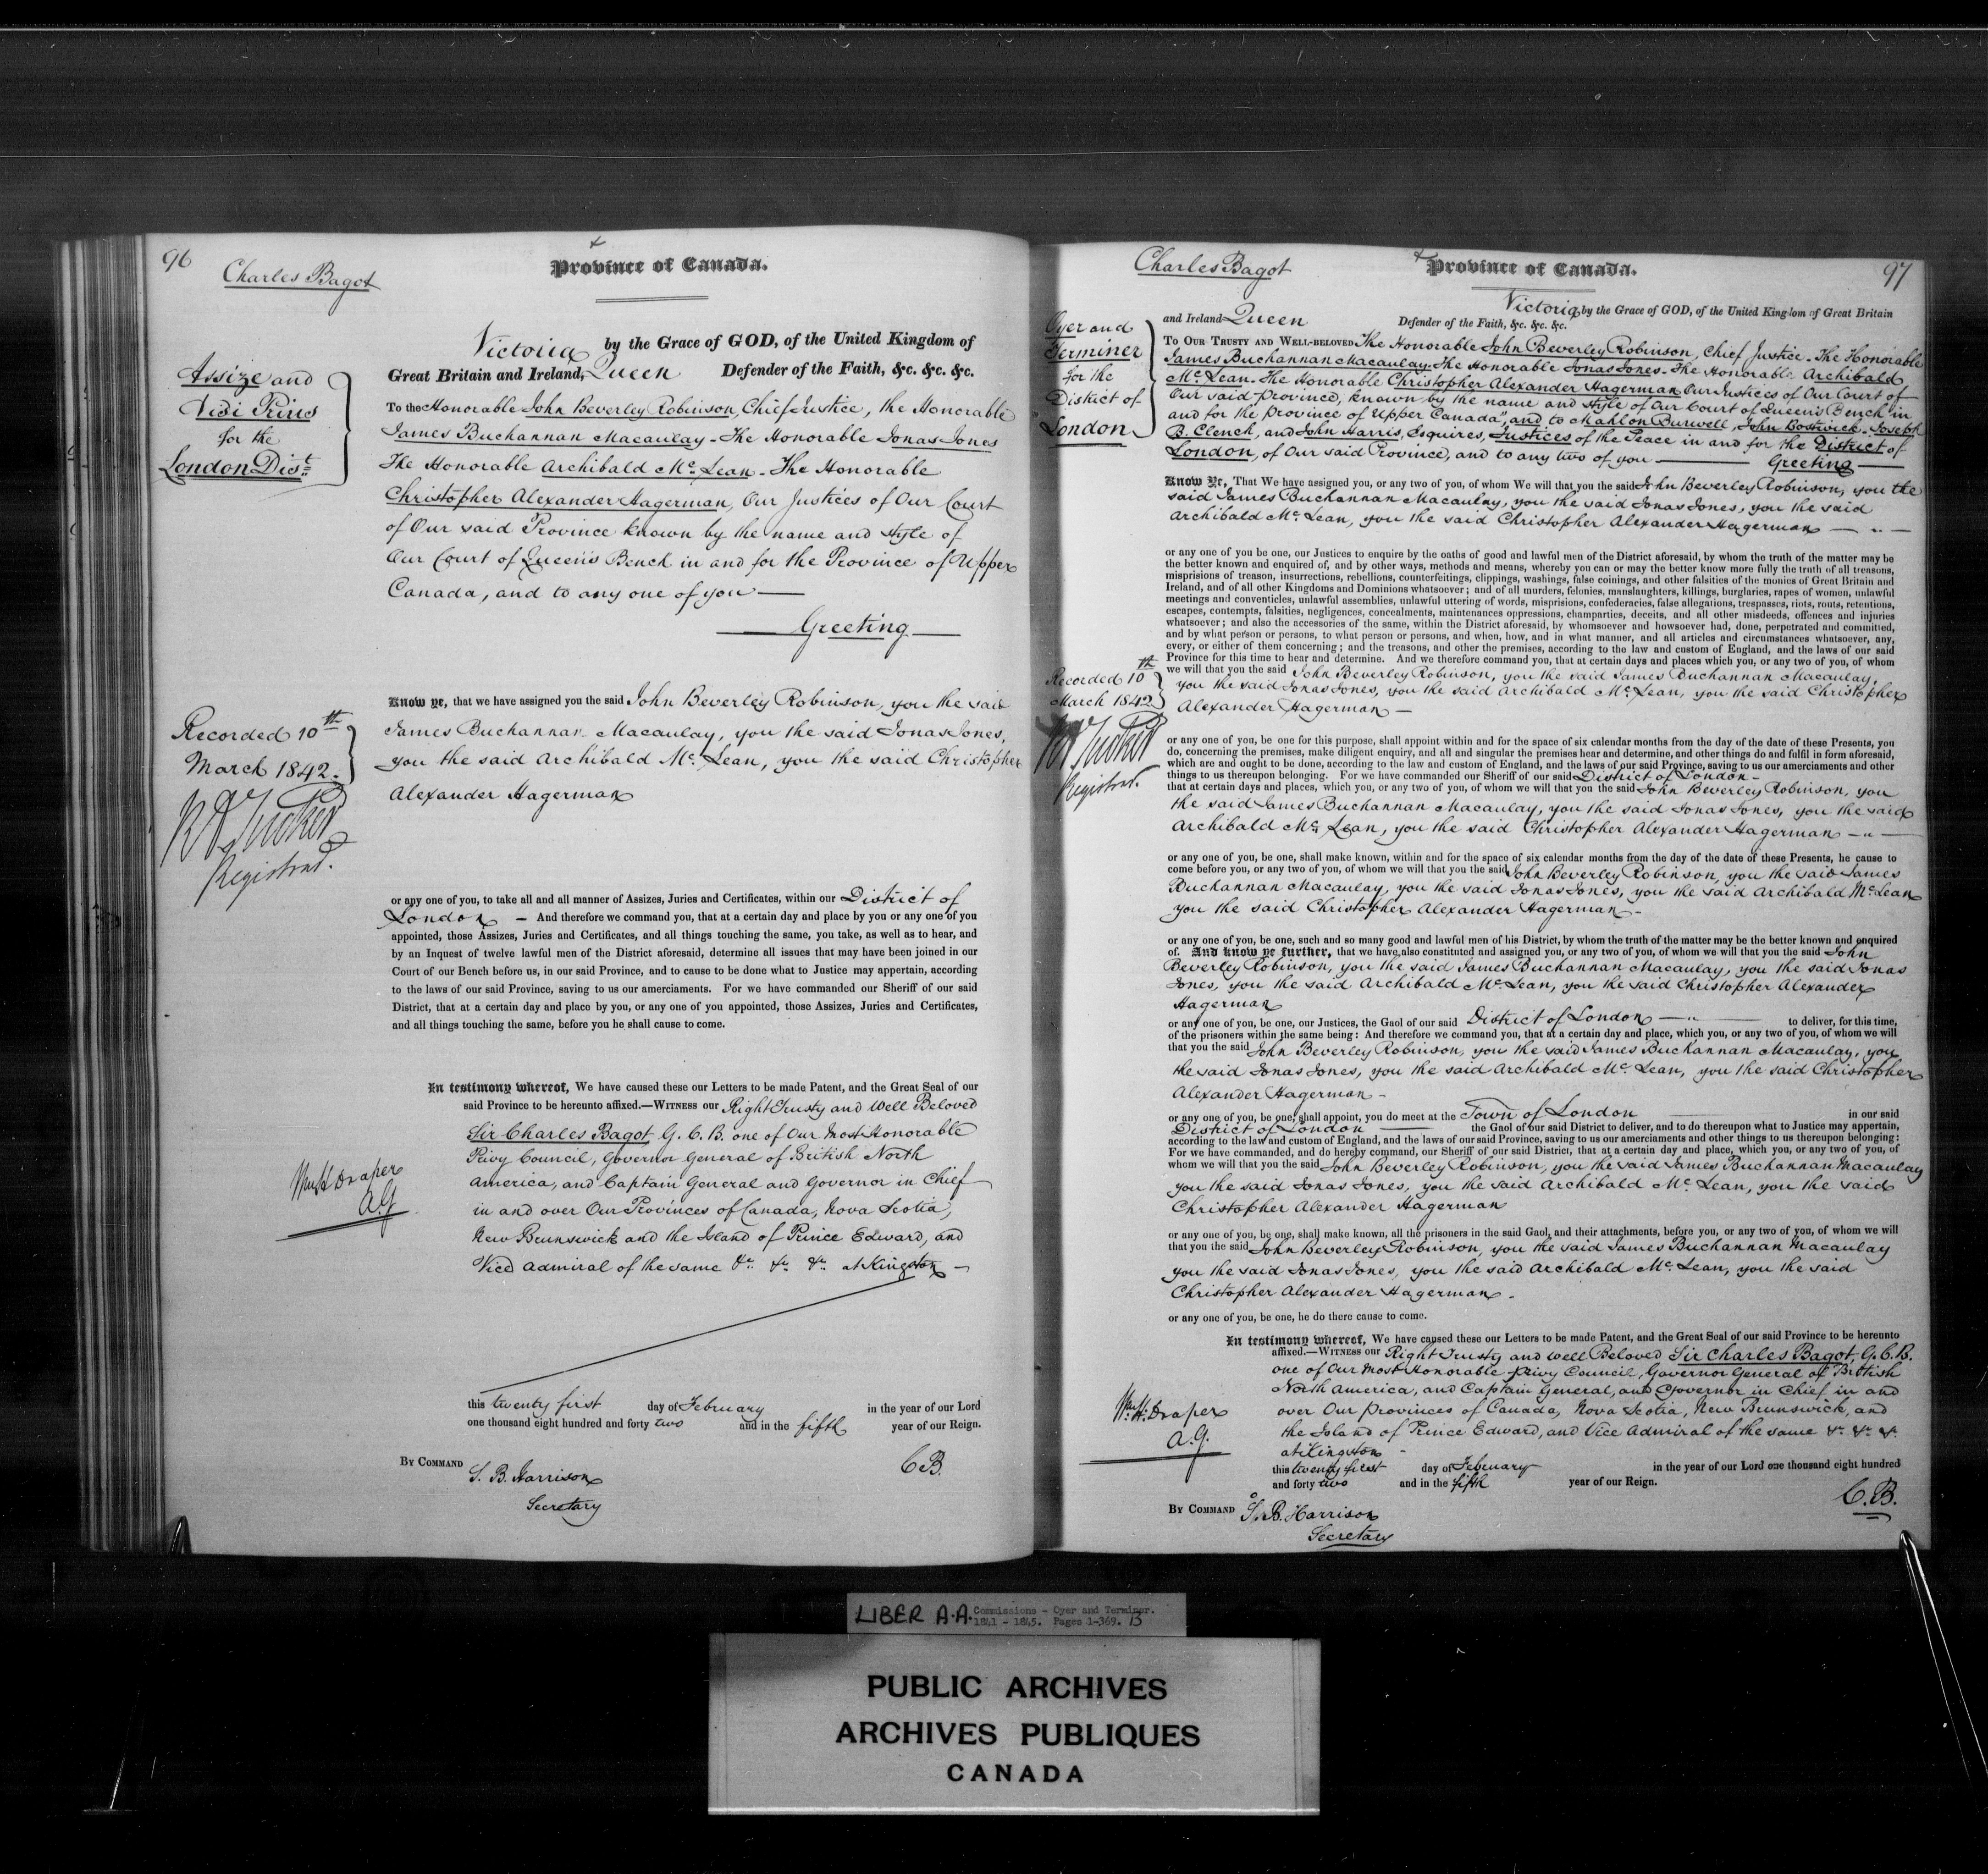 96
Charles Bagot
Province of Canada.
Assize and
Nisi Prius
for the
London Dist
Victoria by the Grace of GOD, of the United Kingdom of
Great Britain and Ireland, Queen Defender of the Faith, &c. &c. &c.
To the Honorable John Beverley Robinson, Chief Justice, the Honorable
James Buchannan Macaulay - The Honorable Jonas Jones
The Honorable Archibald Mc. Lean - The Honorable
Christopher Alexander Hagerman, Our Justices of Our Court
of Our said Province known by the name and style of
Our Court of Queen's Bench in and for the Province of Upper
Canada, and to any one of you —
— Greeting —
Recorded 10th
March 1842.
R A Tucker
Registrar.
Know ye, that we have assigned you the said John Beverley Robinson, you the said
James Buchannan Macaulay, you the said Jonas Jones,
you the said Archibald Mc. Lean, you the said Christopher
Alexander Hagerman
or any one of you, to take all and all manner of Assizes, Juries and Certificates, within our District of
London — And therefore we command you, that at a certain day and place by you or any one of you
appointed, those Assizes, Juries and Certificates, and all things touching the same, you take, as well as to hear, and
by an Inquest of twelve lawful men of the District aforesaid, determine all issues that may have been joined in our
Court of our Bench before us, in our said Province, and to cause to be done what to Justice may appertain, according
to the laws of our said Province, saving to us our amerciaments. For we have commanded our Sheriff of our said
District, that at a certain day and place by you, or any one of you appointed, those Assizes, Juries and Certificates,
and all things touching the same, before you he shall cause to come.
In testimony whereof, We have caused these our Letters to be made Patent, and the Great Seal of our
said Province to be hereunto affixed.—WITNESS our Right Trusty and Well Beloved
Sir Charles Bagot, G. C. B. one of Our Most Honorable
Privy Council, Governor General of British North
America, and Captain General and Governor in Chief
in and over Our Provinces of Canada, Nova Scotia,
New Brunswick and the Island of Prince Edward, and
Vice Admiral of the same &c. &c. &c. at Kingston —
Wm H Draper
A.G
this twenty first day of February in the year of our Lord
one thousand eight hundred and forty two and in the fifth year of our Reign.
BY COMMAND
C.B.
S. B. Harrison
Secretary
Charles Bagot
Province of Canada.
97
Oyer and
Terminer
for the
District of
London
Victoria by the Grace of GOD, of the United Kingdom of Great Britain
and Ireland Queen Defender of the Faith, &c. &c. &c.
TO OUR TRUSTY AND WELL-BELOVED The Honorable John Beverley Robinson, Chief Justice - The Honorable
James Buchannan Macaulay - The Honorable Jonas Jones - The Honorable Archibald
Mc. Lean - The Honorable Christopher Alexander Hagerman Our Justices of Our Court of
Our said Province, known by the name and style of Our Court of Queen's Bench in
and for the Province of Upper Canada", and to Mahlon Burwell, John Bostwick - Joseph
B. Clench, and John Harris, Esquires, Justices of the Peace in and for the District of
London, of Our said Province, and to any two of you — Greeting —
Know Ye, That We have assigned you, or any two of you, of whom We will that you the said John Beverley Robinson, you the
said James Buchannan Macaulay, you the said Jonas Jones, you the said
Archibald Mc. Lean, you the said Christopher Alexander Hagerman — " —
or any one of you be one, our Justices to enquire by the oaths of good and lawful men of the District aforesaid, by whom the truth of the matter may be
the better known and enquired of, and by other ways, methods and means, whereby you can or may the better know more fully the truth of all treasons,
misprisions of treason, insurrections, rebellions, counterfeitings, clippings, washings, false coinings, and other falsities of the monies of Great Britain and
Ireland, and of all other Kingdoms and Dominions whatsoever; and of all murders, felonies, manslaughters, killings, burglaries, rapes of women, unlawful
meetings and conventicles, unlawful uttering of words, misprisions, confederacies, false allegations, trespasses, riots, routs, retentions,
escapes, contempts, falsities, negligences, concealments, maintenances oppressions, champarties, deceits, and all other misdeeds, offences and injuries
whatsoever; and also the accessories of the same, within the District aforesaid, by whomsoever and howsoever had, done, perpetrated and committed,
and by what person or persons, to what person or persons, and when, how, and in what manner, and all articles and circumstances whatsoever, any,
every, or either of them concerning; and the treasons, and other the premises, according to the law and custom of England, and the laws of our said
Province for this time to hear and determine. And we therefore command you, that at certain days and places which you, or any two of you, of whom
we will that you the said John Beverley Robinson, you the said James Buchannan Macaulay,
you the said Jonas Jones, you the said Archibald Mc. Lean, you the said Christopher
Alexander Hagerman —
Recorded 10th
March 1842
R A Tucker
Registrar.
or any one of you, be one for this purpose, shall appoint within and for the space of six calendar months from the day of the date of these Presents, you
do, concerning the premises, make diligent enquiry, and all and singular the premises hear and determine, and other things do and fulfil in form aforesaid,
which are and ought to be done, according to the law and custom of England, and the laws of our said Province, saving to us our amerciaments and other
things to us thereupon belonging. For we have commanded our Sheriff of our said District of London -
that at certain days and places, which you, or any two of you, of whom we will that you the said John Beverley Robinson, you
the said James Buchannan Macaulay, you the said Jonas Jones, you the said
Archibald Mc. Lean, you the said Christopher Alexander Hagerman — " —
or any one of you, be one, shall make known, within and for the space of six calendar months from the day of the date of these Presents, he cause to
come before you, or any two of you, of whom we will that you the said John Beverley Robinson, you the said James
Buchannan Macaulay, you the said Jonas Jones, you the said Archibald Mc Lean
you the said Christopher Alexander Hagerman -
or any one of you, be one, such and so many good and lawful men of his District, by whom the truth of the matter may be the better known and enquired
of. And know ye further, that we have also constituted and assigned you, or any two of you, of whom we will that you the said John
Beverley Robinson, you the said James Buchannan Macaulay, you the said Jonas
Jones, you the said Archibald Mc. Lean, you the said Christopher Alexander
Hagerman
or any one of you, be one, our Justices, the Gaol of our said District of London — " — to deliver, for this time,
of the prisoners within the same being: And therefore we command you, that at a certain day and place, which you, or any two of you, of whom we will
that you the said John Beverley Robinson, you the said James Buchannan Macaulay, you
the said Jonas Jones, you the said Archibald Mc. Lean, you the said Christopher
Alexander Hagerman -
or any one of you, be one, shall appoint, you do meet at the Town of London — in our said
District of London — the Gaol of our said District to deliver, and to do thereupon what to Justice may appertain,
according to the law and custom of England, and the laws of our said Province, saving to us our amerciaments and other things to us thereupon belonging:
For we have commanded, and do hereby command, our Sheriff of our said District, that at a certain day and place, which you, or any two of you, of
whom we will that you the said John Beverley Robinson, you the said James Buchannan Macaulay
you the said Jonas Jones, you the said Archibald Mc. Lean, you the said
Christopher Alexander Hagerman
or any one of you, be one, shall make known, all the prisoners in the said Gaol, and their attachments, before you, or any two of you, of whom we will
that you the said John Beverley Robinson, you the said James Buchannan Macaulay
you the said Jonas Jones, you the said Archibald Mc. Lean, you the said
Christopher Alexander Hagerman -
or any one of you, be one, he do there cause to come.
In testimony whereof, We have caused these our Letters to be made Patent, and the Great Seal of our said Province to be hereunto
affixed.—WITNESS our Right Trusty and Well Beloved Sir Charles Bagot, G. C. B.
one of Our Most Honorable Privy Council, Governor General of British
North America, and Captain General, and Governor in Chief in and
over Our Provinces of Canada, Nova Scotia, New Brunswick, and
the Island of Prince Edward, and Vice Admiral of the same &c. &c. &c.
at Kingston -
Wm. H. Draper
A. G.
this twenty first day of February in the year of our Lord one thousand eight hundred
and forty two and in the fifth year of our Reign.
C. B.
BY COMMAND S. B. Harrison
Secretary
LIBER A.A. Commissions - Oyer and Terminer.
1841 - 1845. Pages 1-369. B
PUBLIC ARCHIVES
ARCHIVES PUBLIQUES
CANADA